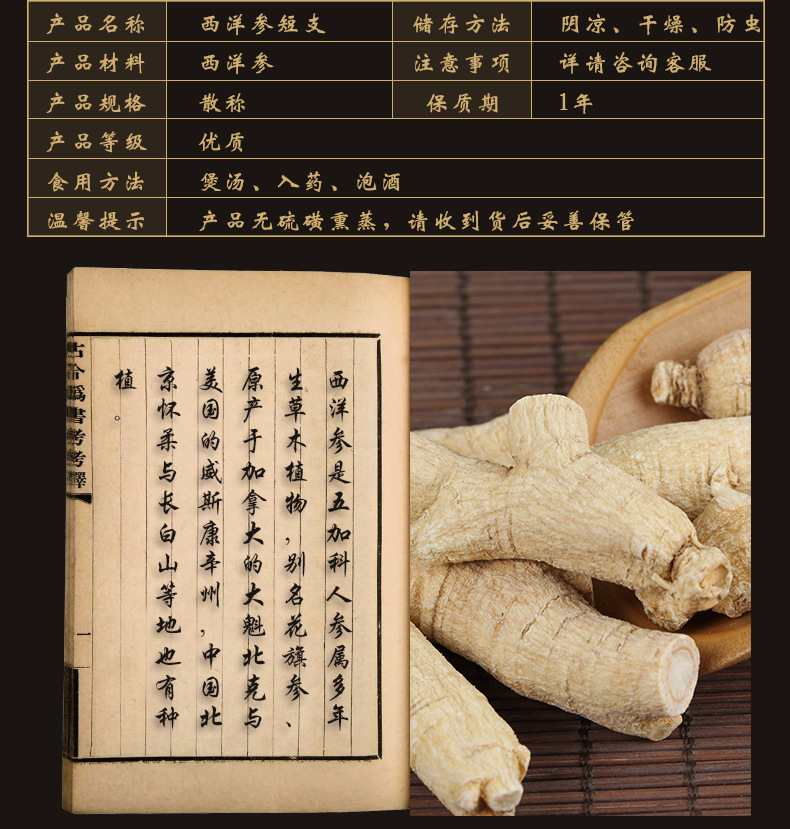 产品名称 西洋参短支 储存方法 阴凉、干燥、防虫
产品材料 西洋参 注意事项 详请咨询客服
产品规格 散称 保质期 1年
产品等级 优质
食用方法 煲汤、入药、泡酒
温馨提示 产品无硫磺熏蒸，请收到货后妥善保管
西洋参是五加科人参属多年
生草木植物，别名花旗参、
原产于加拿大的大魁北克与
美国的威斯康辛州，中国北
京怀柔与长白山等地也有种
植。
古今爲書考考釋
一